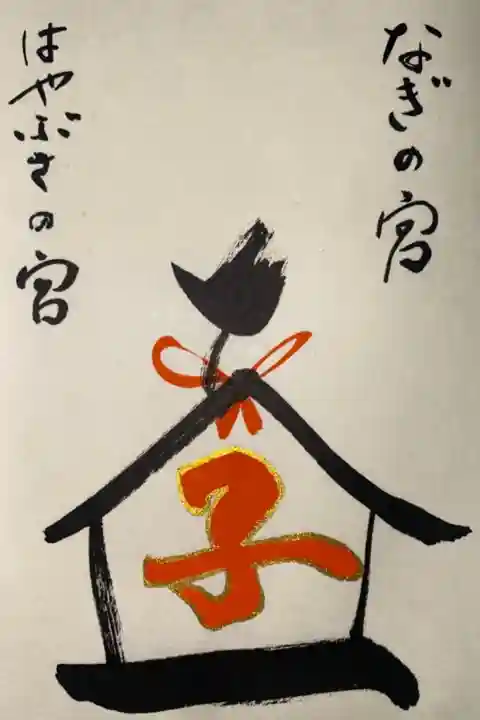 なぎの宮
はやぶさの宮
子